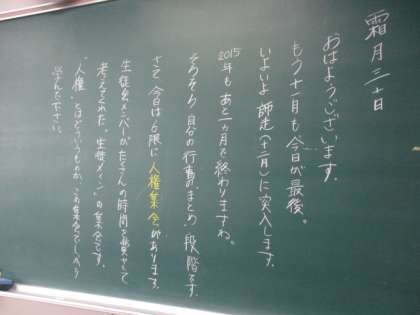 霜月三十日
おはようございます。
もう十一月も今日が最後。
いよいよ師走(十二月)に突入します。
2015年もあと一カ月で終わりますね。
そろそろ自分の行事の"まとめ"段階です
さて今日は6限に人権集会があります。
生徒会メンバーがたくさんの時間を費やして
考えてくれた、"生徒メイン"の集会です。
"人権"とはどういうものか、この集会でしっかり
学んで下さい。